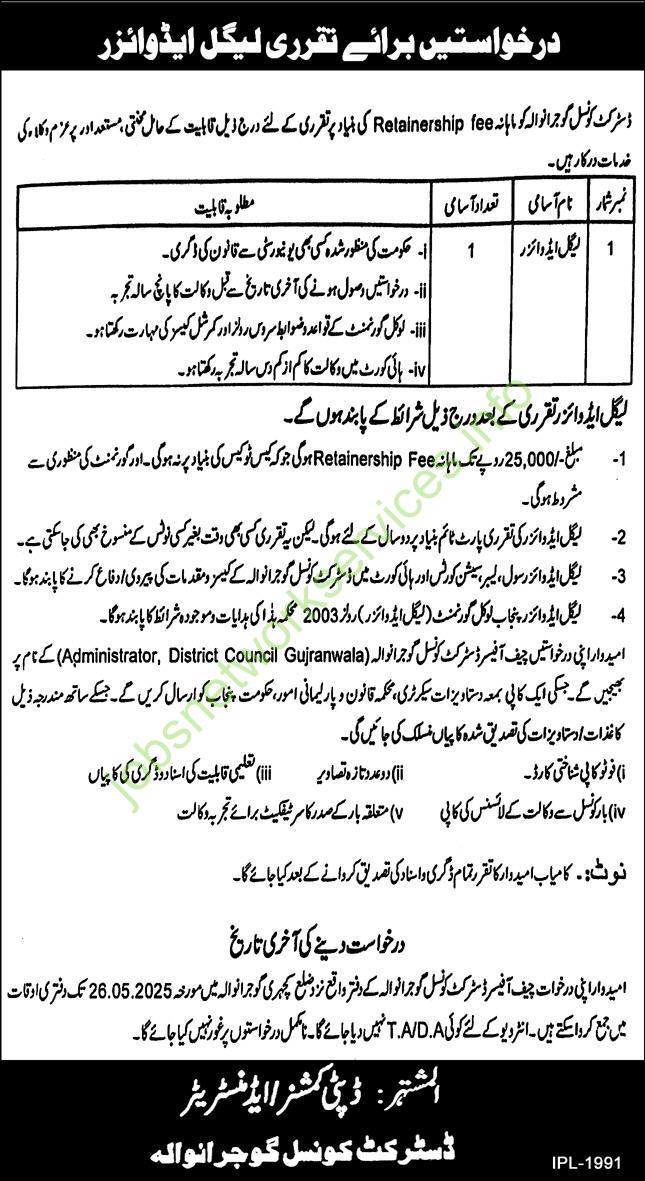 درخواستیں برائے تقرری لیگل ایڈوائزر
ڈسٹرکٹ کونسل گوجرانوالہ کو ماہانہ Retainership fee کی بنیاد پر تقرری کے لئے درج ذیل قابلیت کے حامل محنتی، مستعد اور پرعزم وکلاء کی
خدمات درکار ہیں۔
نمبر شمار نام آسامی تعداد آسامی مطلوبہ قابلیت
1 لیگل ایڈوائزر 1 i- حکومت کی منظور شدہ کسی بھی یونیورسٹی سے قانون کی ڈگری۔
ii- درخواستیں وصول ہونے کی آخری تاریخ سے قبل وکالت کا پانچ سالہ تجربہ
iii- لوکل گورنمنٹ کے قواعد و ضوابط سروس رولز اور کمرشل کیسز کی مہارت رکھتا ہو۔
iv- ہائی کورٹ میں وکالت کا کم از کم دس سالہ تجربہ رکھتا ہو۔
لیگل ایڈوائزر تقرری کے بعد درج ذیل شرائط کے پابند ہوں گے۔
1- مبلغ -/25,000 روپے تک ماہانہ Retainership Fee ہوگی جو کہ کیس ٹو کیس کی بنیاد پر نہ ہوگی۔ اور گورنمنٹ کی منظوری سے
مشروط ہوگی۔
2- لیگل ایڈوائزر کی تقرری پارٹ ٹائم بنیاد پر دو سال کے لئے ہوگی۔ لیکن یہ تقرری کسی بھی وقت بغیر کسی نوٹس کے منسوخ بھی کی جا سکتی ہے۔
3- لیگل ایڈوائزر سول، لیبر سیشن کورٹس اور ہائی کورٹ میں ڈسٹرکٹ کونسل گوجرانوالہ کے کیسز و مقدمات کی پیروی/دفاع کرنے کا پابند ہوگا۔
4- لیگل ایڈوائزر پنجاب لوکل گورنمنٹ (لیگل ایڈوائزر) رولز 2003 محکمہ ہذا کی ہدایات و موجودہ شرائط کا پابند ہوگا۔
امیدوار اپنی درخواستیں چیف آفیسر ڈسٹرکٹ کونسل گوجرانوالہ (Administrator, District Council Gujranwala) کے نام پر
بھیجیں گے۔ جسکی ایک کاپی بمعہ دستاویزات سیکرٹری، محکمہ قانون و پارلیمانی امور، حکومت پنجاب کو ارسال کریں گے۔ جسکے ساتھ مندرجہ ذیل
کاغذات/دستاویزات کی تصدیق شدہ کاپیاں منسلک کی جائیں گی۔
i) فوٹو کاپی شناختی کارڈ۔ ii) دو عدد تازہ تصاویر iii) تعلیمی قابلیت کی اسناد و ڈگری کی کاپیاں
iv) بار کونسل سے وکالت کے لائسنس کی کاپی v) متعلقہ بار کے صدر کا سرٹیفکیٹ برائے تجربہ وکالت
نوٹ:۔ کامیاب امیدوار کا تقرر تمام ڈگری و اسناد کی تصدیق کروانے کے بعد کیا جائے گا۔
درخواست دینے کی آخری تاریخ
امیدوار اپنی درخوات چیف آفیسر ڈسٹرکٹ کونسل گوجرانوالہ کے دفتر واقع نزد ضلع کچہری گوجرانوالہ میں مورخہ 26.05.2025 تک دفتری اوقات
میں جمع کروا سکتے ہیں۔ انٹرویو کے لئے کوئی T.A/D.A نہیں دیا جائے گا۔ نامکمل درخواستوں پر غور نہیں کیا جائے گا۔
المشتہر: ڈپٹی کمشنر/ایڈمنسٹریٹر
ڈسٹرکٹ کونسل گوجرانوالہ
IPL-1991
jobsnetworkservices.info